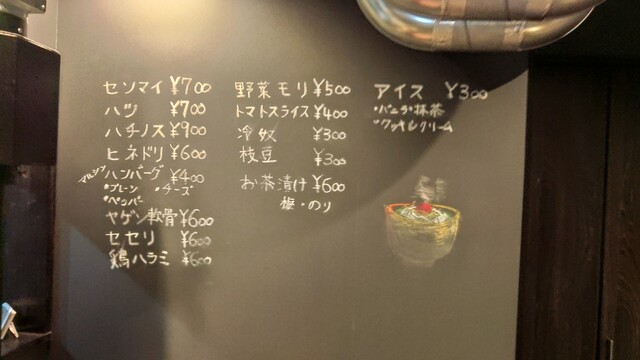 センマイ ¥700
ハツ ¥700
ハチノス ¥900
ヒネドリ ¥600
マルシン ハンバーグ ¥400
・プレーン ・チーズ
・ペッパー
ヤゲン軟骨 ¥600
セセリ ¥600
鶏ハラミ ¥600
野菜モリ ¥500
トマトスライス ¥400
冷奴 ¥300
枝豆 ¥300
お茶漬け ¥600
梅・のり
アイス ¥300
・バニラ・抹茶
・クッキークリーム